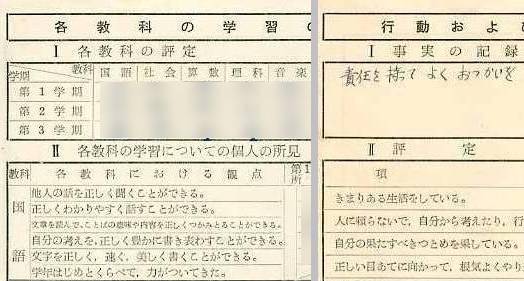 各教科の学習の
I 各教科の評定
学期 教科 国語 社会 算数 理科 音楽
第1学期
第2学期
第3学期
II 各教科の学習についての個人の所見
教科 各教科における観点 第1 所
国語
他人の話を正しく聞くことができる。
正しくわかりやすく話すことができる。
文章を読んで、ことばの意味や内容を正しくつかみとることができる。
自分の考えを、正しく豊かに書き表わすことができる。
文字を正しく、速く、美しく書くことができる。
学年はじめとくらべて、力がついてきた。
行動およ
I 事実の記録
責任を持ってよくおつかいを
II 評定
項
きまりある生活をしている。
人に頼らないで、自分から考えたり、行
自分の果たすべきつとめを果している。
正しい目あてに向かって、根気よくやり